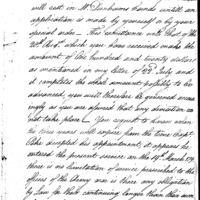 will rest in Mr Dunbar's hands until an
application is made by yourself or by your
special order — This remittance with that of the
20th Sept. which you have received make the
amount of One hundred and twenty dollars
as mentioned in my letter of 22d July and
it completes the whole amount possibly to be
advanced, you will therefore be governed accord
ingly as you are assured that any deviation can
not take place — You request to know when
the three years will expire from the time Capt.
Pike accepted his appointment, it appears he
entered the present service on the 19th March 179
there is no limitation of service prescribed to the
officers of the Army nor is there any obligation
by Law for their continuing longer than